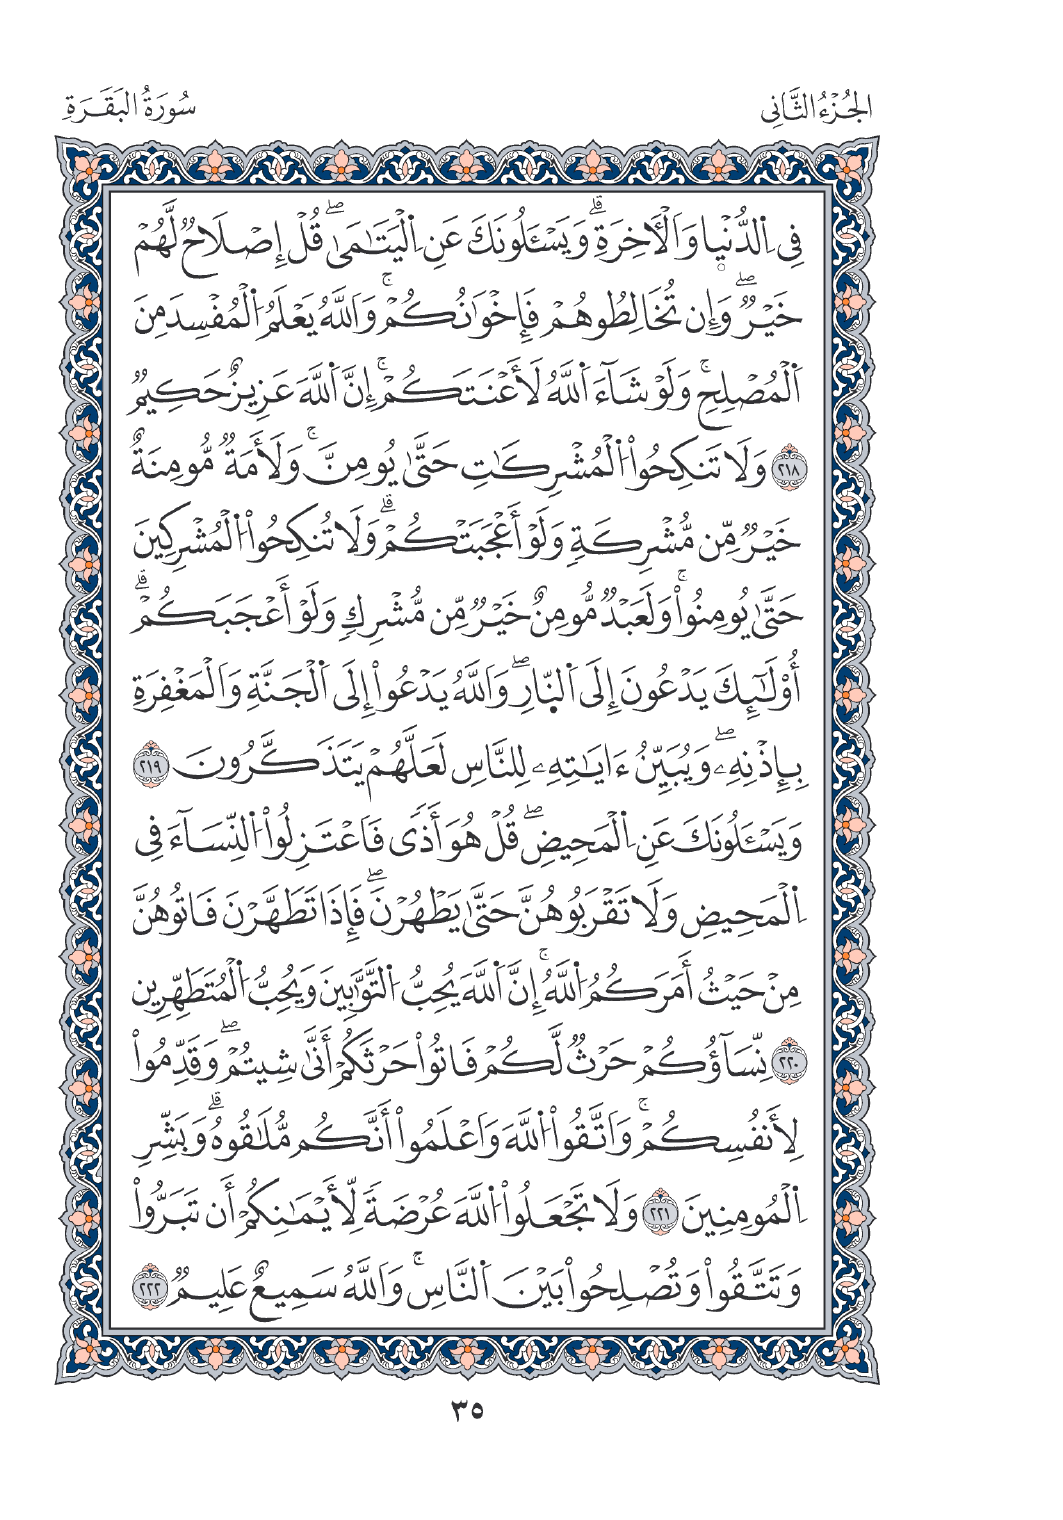 الجُزْءُ الثَّانِي
سُورَةُ البَقَرَةِ
فِي اِ۬لدُّنْي۪ا وَاَ۬لْأٓخِرَةِۗ وَيَسْـَٔلُونَكَ عَنِ اِ۬لْيَتَٰمَىٰۖ قُلْ إِصْلَاحٞ لَّهُمْ
خَيْرٞۖ وَإِن تُخَالِطُوهُمْ فَإِخْوَٰنُكُمْۚ وَاَ۬للَّهُ يَعْلَمُ اُ۬لْمُفْسِدَ مِنَ
اَ۬لْمُصْلِحِۚ وَلَوْ شَآءَ اَ۬للَّهُ لَأَعْنَتَكُمْۚ إِنَّ اَ۬للَّهَ عَزِيزٌ حَكِيمٞ
٢١٨ وَلَا تَنكِحُواْ اُ۬لْمُشْرِكَٰتِ حَتَّىٰ يُومِنَّۚ وَلَأَمَةٞ مُّومِنَةٌ
خَيْرٞ مِّن مُّشْرِكَةٖ وَلَوْ أَعْجَبَتْكُمْۗ وَلَا تُنكِحُواْ اُ۬لْمُشْرِكِينَ
حَتَّىٰ يُومِنُواْۚ وَلَعَبْدٞ مُّومِنٌ خَيْرٞ مِّن مُّشْرِكٖ وَلَوْ أَعْجَبَكُمْۗ
أُوْلَٰٓئِكَ يَدْعُونَ إِلَى اَ۬لنّ۪ارِۖ وَاَ۬للَّهُ يَدْعُواْ إِلَى اَ۬لْجَنَّةِ وَاَلْمَغْفِرَةِ
بِإِذْنِهِۦۖ وَيُبَيِّنُ ءَايَٰتِهِۦ لِلنَّاسِ لَعَلَّهُمْ يَتَذَكَّرُونَ ٢١٩
وَيَسْـَٔلُونَكَ عَنِ اِ۬لْمَحِيضِۖ قُلْ هُوَ أَذٗى فَاعْتَزِلُواْ اُ۬لنِّسَآءَ فِي
اِ۬لْمَحِيضِ وَلَا تَقْرَبُوهُنَّ حَتَّىٰ يَطْهُرْنَۖ فَإِذَا تَطَهَّرْنَ فَاتُوهُنَّ
مِنْ حَيْثُ أَمَرَكُمُ اُ۬للَّهُۚ إِنَّ اَ۬للَّهَ يُحِبُّ اُ۬لتَّوَّٰبِينَ وَيُحِبُّ اُ۬لْمُتَطَهِّرِينَ
٢٢٠ نِّسَآؤُكُمْ حَرْثٞ لَّكُمْ فَاتُواْ حَرْثَكُمْ أَنَّىٰ شِيتُمْۖ وَقَدِّمُواْ
لِأَنفُسِكُمْۚ وَاَتَّقُواْ اُ۬للَّهَ وَاَعْلَمُواْ أَنَّكُم مُّلَٰقُوهُۗ وَبَشِّرِ
اِ۬لْمُومِنِينَ ٢٢١ وَلَا تَجْعَلُواْ اُ۬للَّهَ عُرْضَةٗ لِّأَيْمَٰنِكُمْ أَن تَبَرُّواْ
وَتَتَّقُواْ وَتُصْلِحُواْ بَيْنَ اَ۬لنَّاسِۚ وَاَ۬للَّهُ سَمِيعٌ عَلِيمٞ ٢٢٢
٣٥